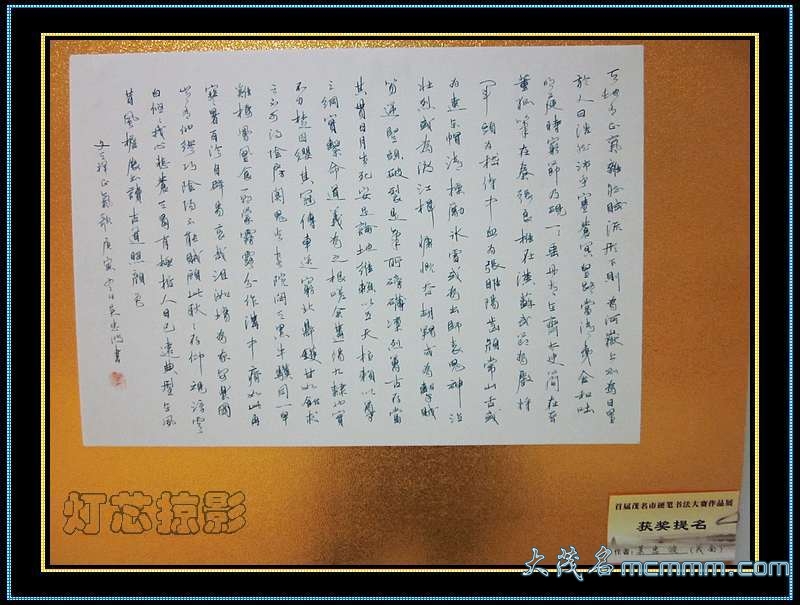 天地有正氣雜然賦流形下則為河嶽上則為日星
於人曰浩然沛乎塞蒼冥皇路當清夷含和吐
明庭時窮節乃現一一垂丹青在齊太史簡在晉
董狐筆在秦張良椎在漢蘇武節為嚴將
軍頭為嵇侍中血為張睢陽齒顏常山舌或
為遼東帽清操厲冰雪或為出師表鬼神泣
壯烈或為渡江楫慷慨吞胡羯或為擊賊
笏逆豎頭破裂是氣所磅礴凜烈萬古存當
其貫日月生死安足論地維賴以立天柱賴以尊
三綱實繫命道義為之根嗟余遘陽九隸也實
不力楚囚纓其冠傳車送窮北鼎鑊甘如飴求
之不可得陰房闃鬼火春院閟天黑牛驥同一皁
雞棲鳳凰食一朝蒙霧露分作溝中瘠如此再
寒暑百沴自辟易哀哉沮洳場為我安樂國
豈有他繆巧陰陽不能賊顧此耿耿存仰視浮雲
白悠悠我心悲蒼天曷有極哲人日已遠典型在夙
昔風檐展書讀古道照顏色
文天祥正氣歌庚寅忠波書
灯芯掠影
首届茂名市硬笔书法大赛作品展
获奖提名
作者:忠波(茂南)
大茂名mcmmm.com